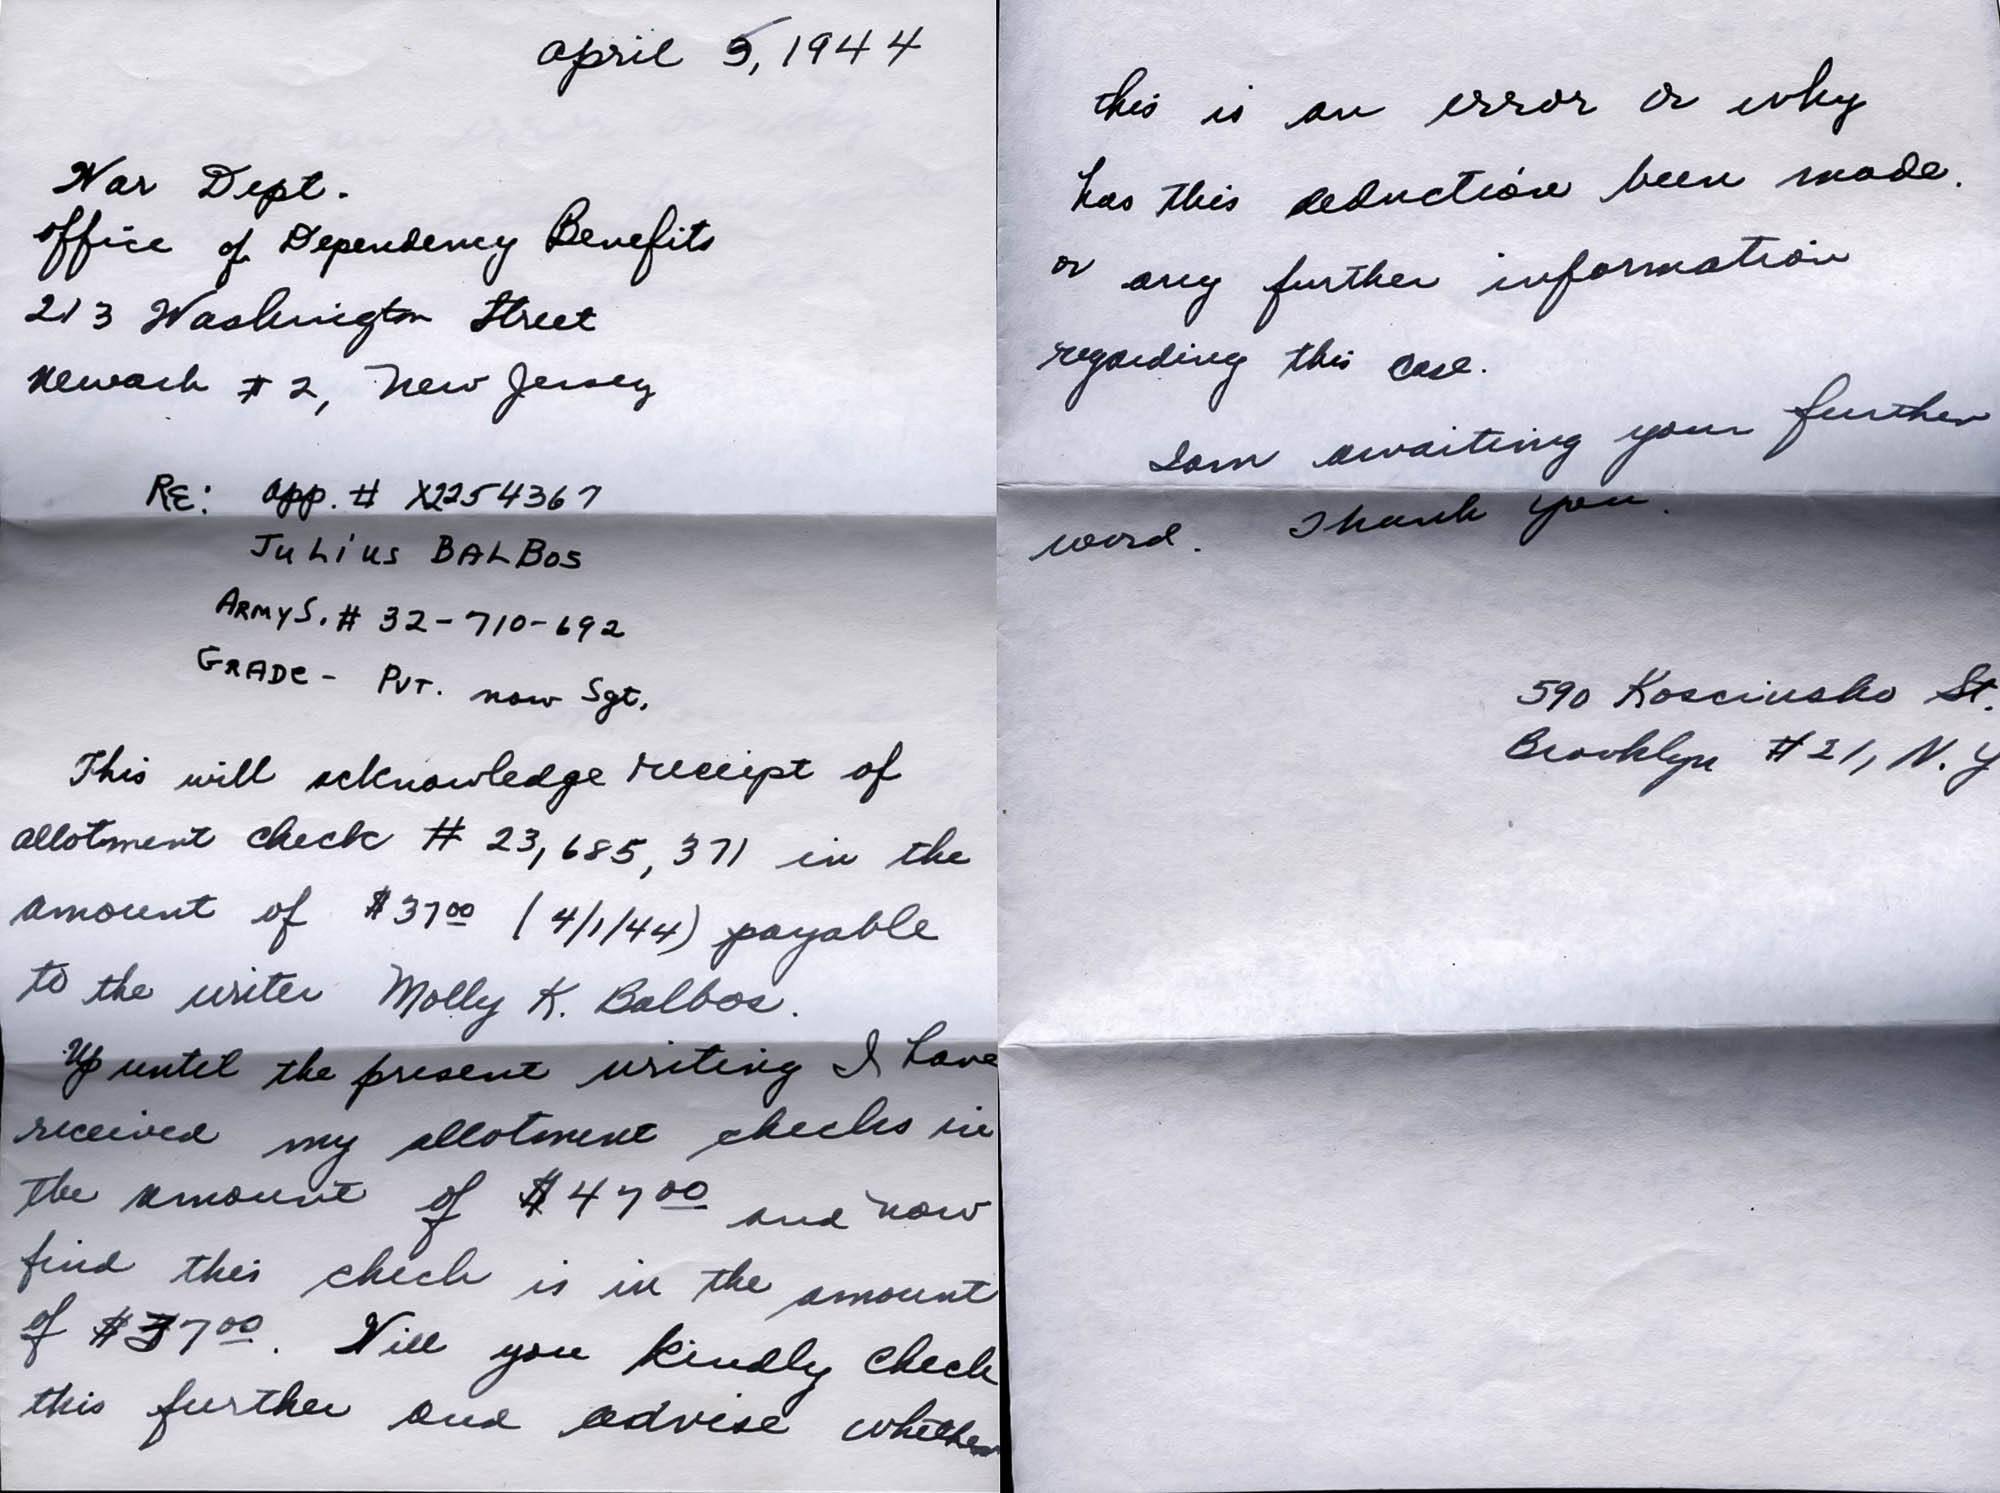 April 5, 1944
War Dept.
Office of Dependency Benefits
213 Washington Street
Newark # 2, New Jersey
RE: App. # X2254367
JULIUS BALBOS
ARMY S. # 32-710-692
GRADE - PVT. now Sgt.
This will acknowledge receipt of
allotment check # 23,685,371 in the
amount of $3700 (4/1/44) payable
to the writer Molly K. Balbos.
Up until the present writing I have
received my allotment checks in
the amount of $4700 and now
find this check is in the amount
of $3700. Will you kindly check
this further and advise whether
this is an error or why
has this deduction been made.
or any further information
regarding this case.
I am awaiting your further
word. Thank you.
590 Kosciusko St.
Brooklyn #21, N.Y